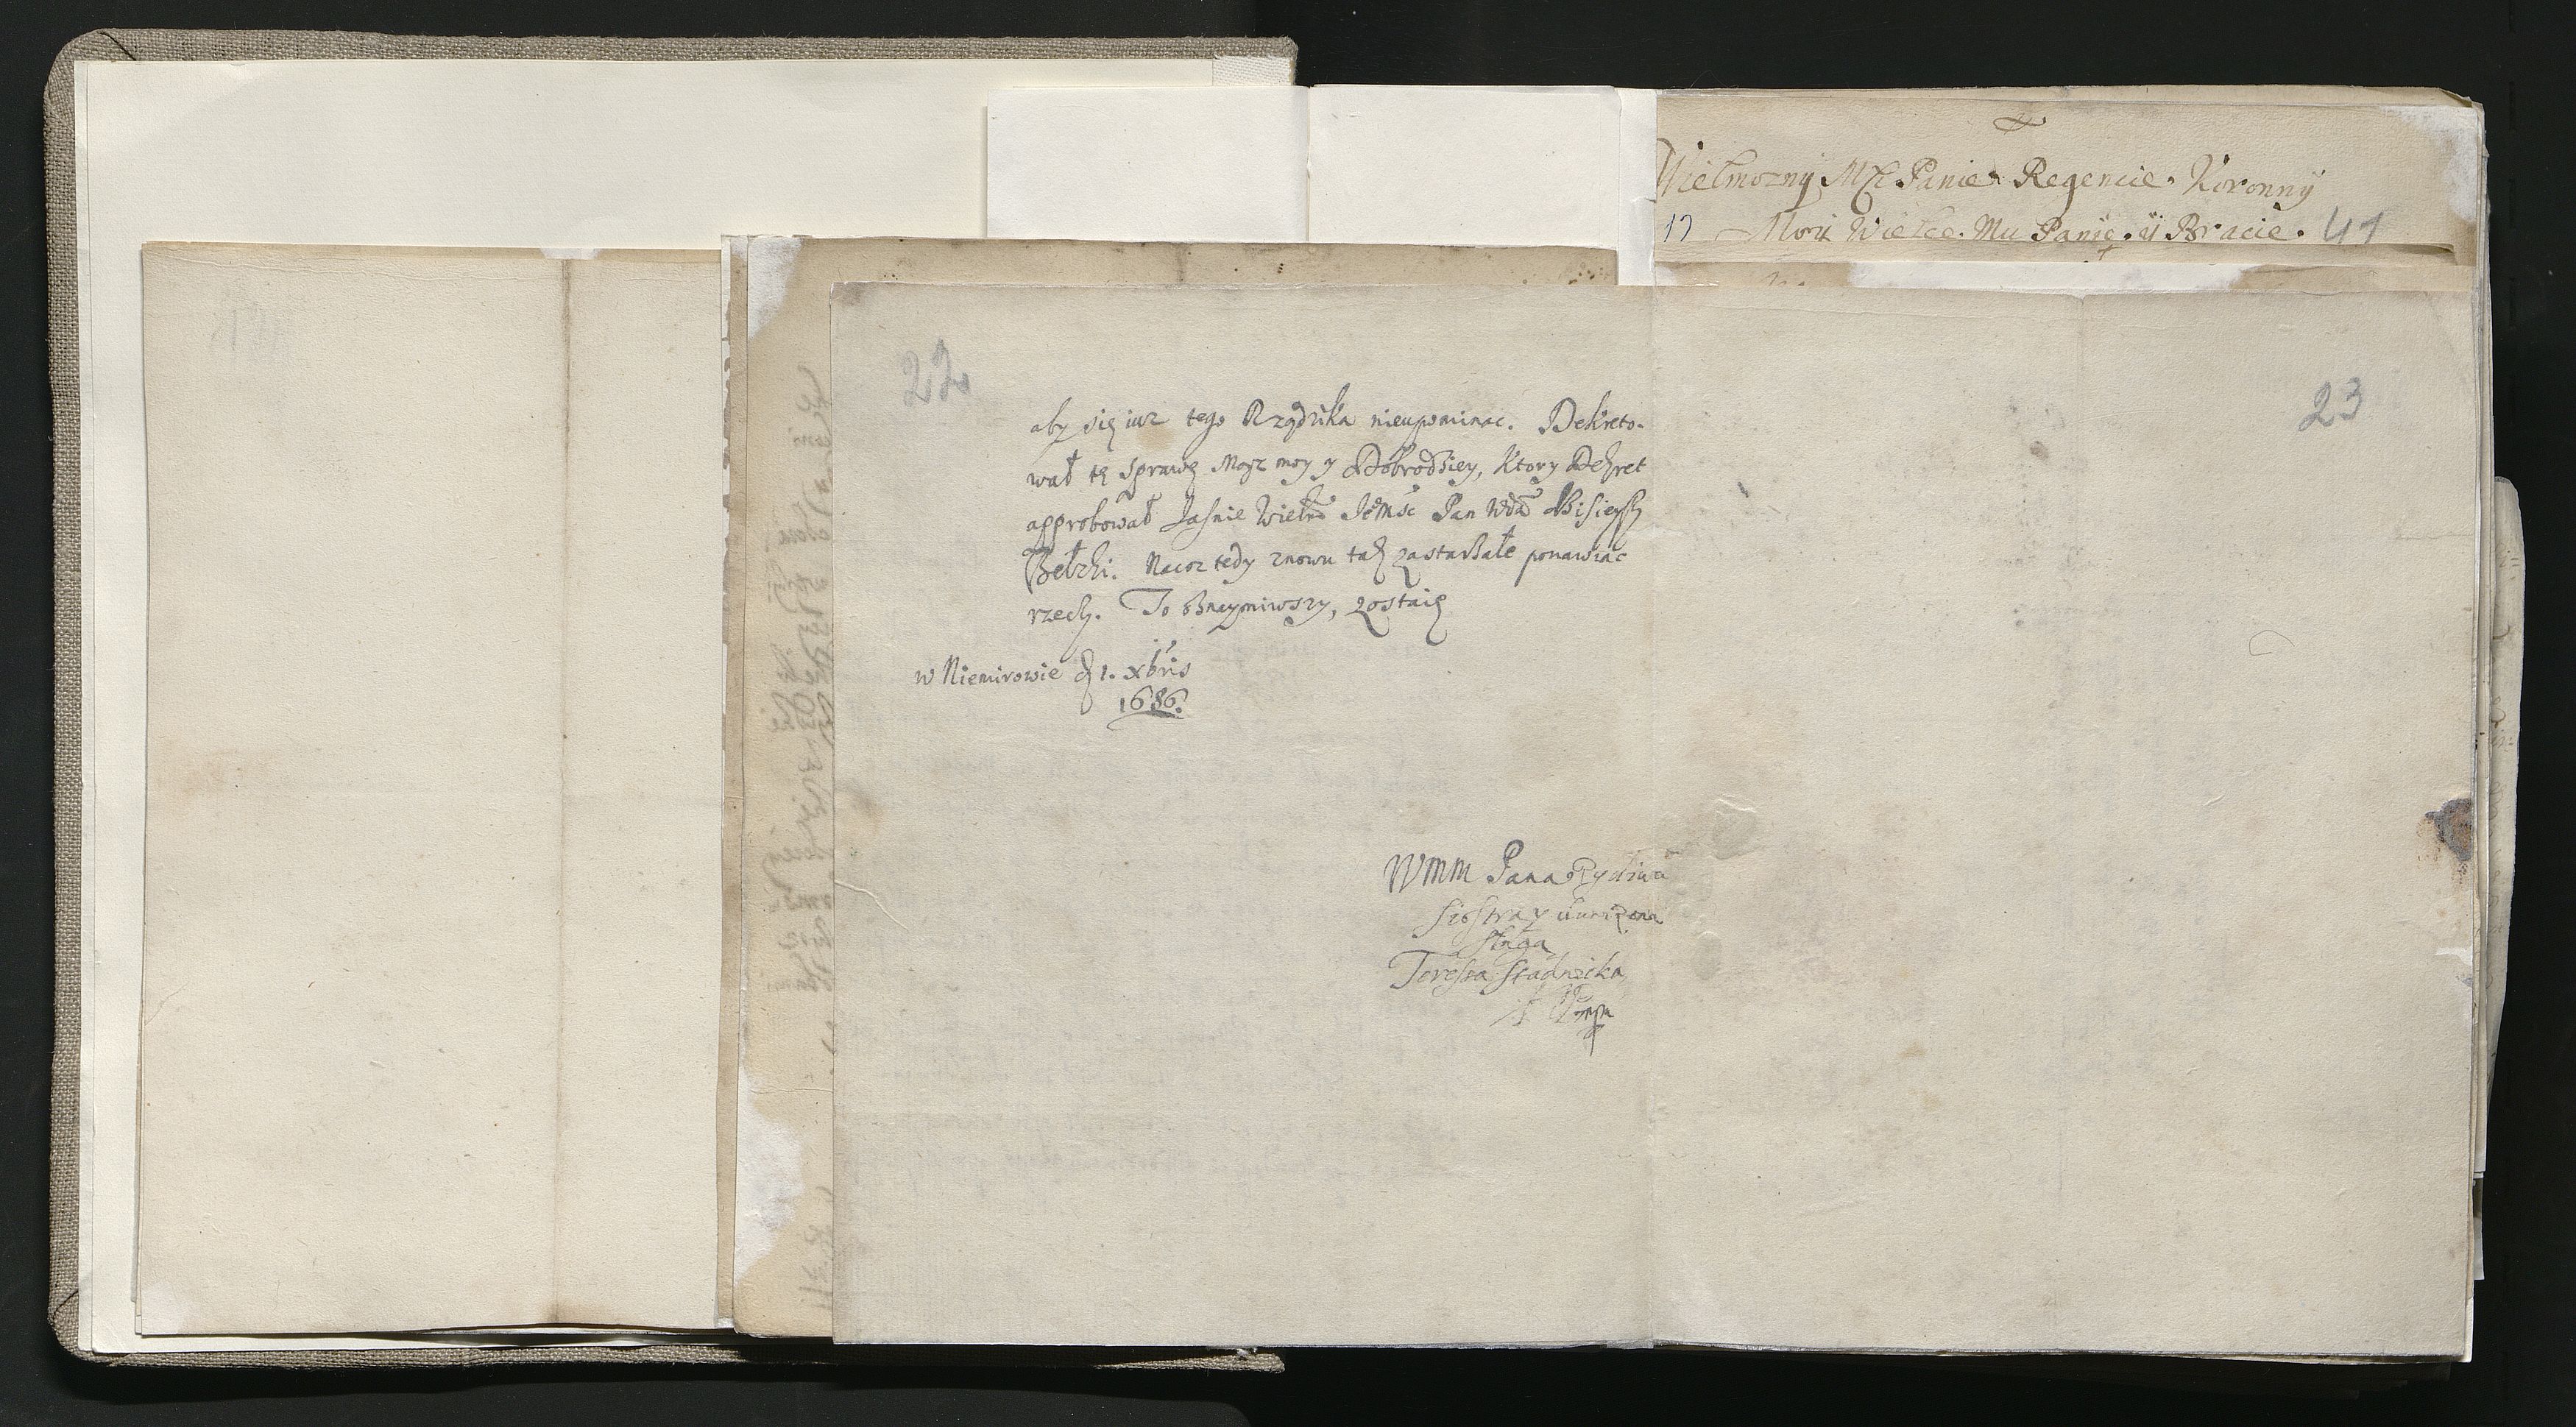 Wielmozny Mći Panie Regencie Koronnÿ
17 Mnie Wielce Mu Panie ÿ Bracie 41
22
23
aby się iuz tego Rządzika nieupominac. Dekreto-
wał tę sprawę Mąz moy y Dobrodziey, ktory Dekret
approbował Jasnie Wielm Jemsc Pan Wda dzisieyszy
Bełzki. Nacoz tedy znowu tak zastarzałe ponawiac
rzeczy. To oznaymiwszy, zostaię
w Niemirowie d 1. xbris
1686.
WMM Pana Zyczliwa
siostra y unizona
sługa
Teressa Stadnicka